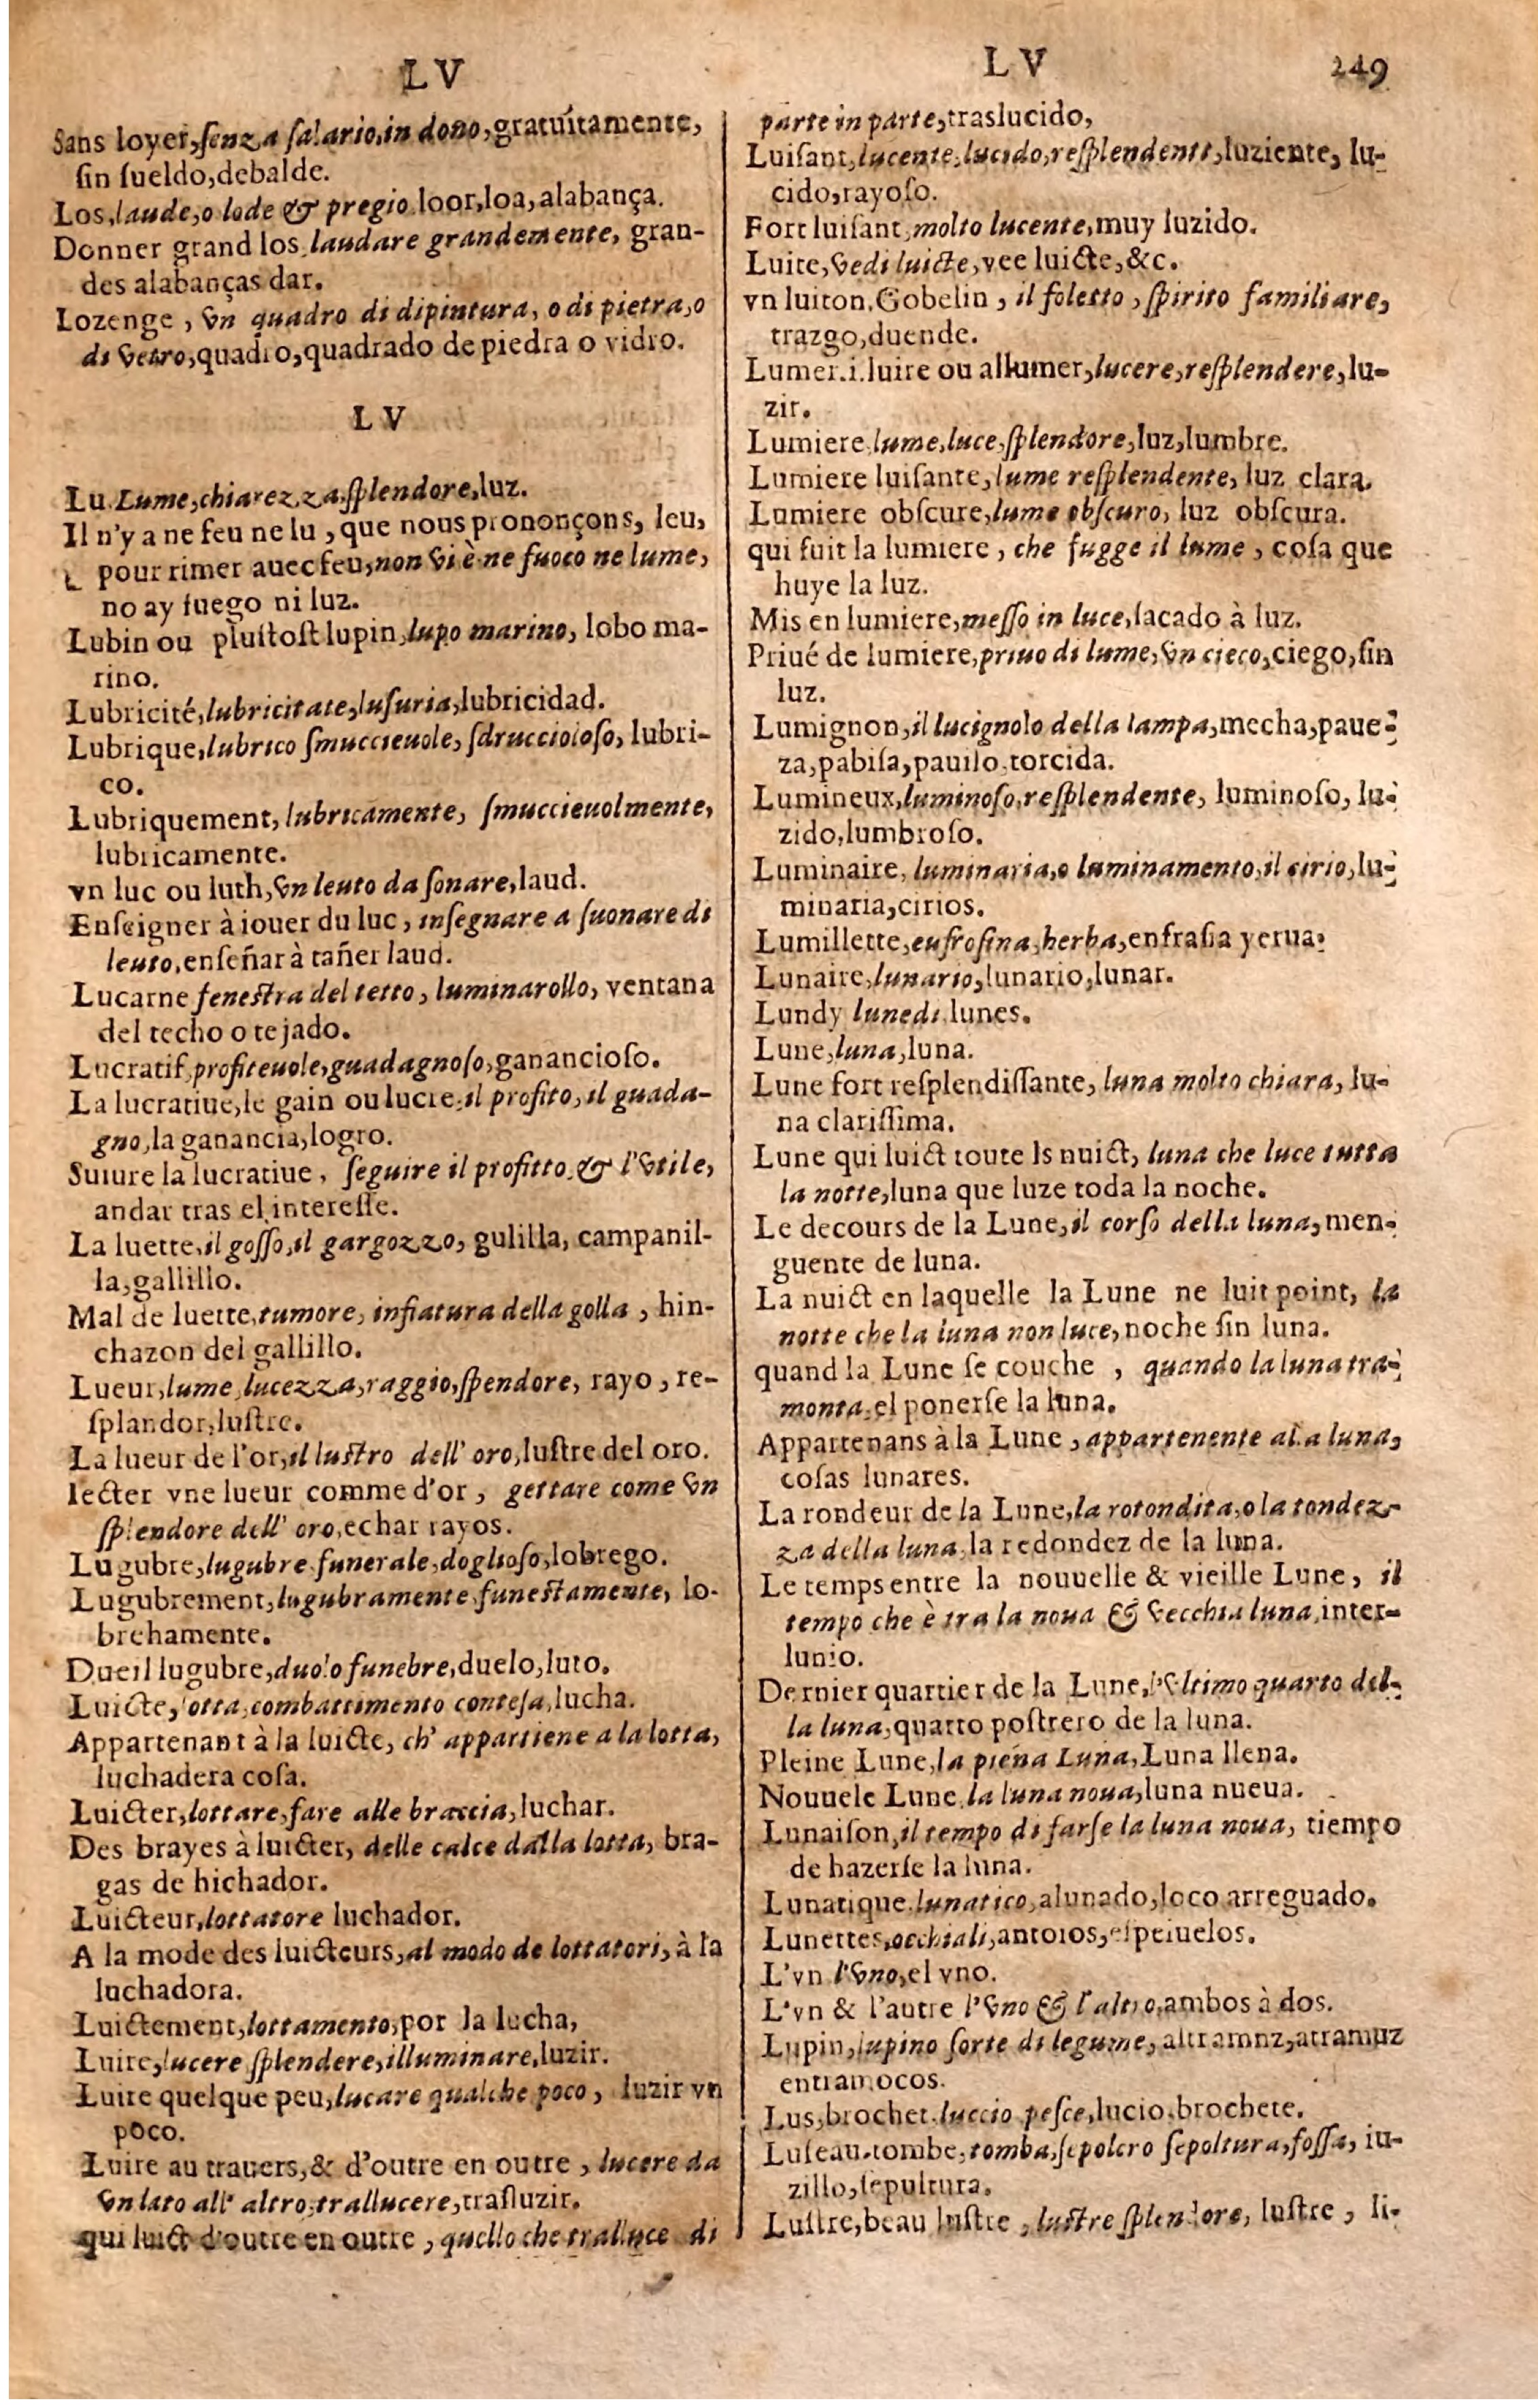 LV
Sans loyer, ſenza ſalario, in dono, gratuitamente,
ſin ſueldo, debalde.
Los, laude, o lode & pregio loor, loa, alabança.
Donner grand los, laudare grandemente, gran-
des alabanças dar.
Lozenge, vn quadro di dipintura, o di pietra, o
di vetro, quadro, quadrado de piedra o vidro.
LV
Lu Lume, chiarezza, ſplendore, luz.
Il n'y a ne feu ne lu, que nous prononçons, leu,
pour rimer auec feu, non vi è ne fuoco ne lume,
no ay fuego ni luz.
Lubin ou pluſtoſt lupin, lupo marino, lobo ma-
rino.
Lubricité, lubricitate, luſuria, lubricidad.
Lubrique, lubrico ſmuccieuole, ſdruccioloſo, lubri-
co.
Lubriquement, lubricamente, ſmuccieuolmente,
lubricamente.
vn luc ou luth, vn leuto da ſonare, laud.
Enſeigner à iouer du luc, inſegnare a ſuonare di
leuto, enſeñar à tañer laud.
Lucarne feneſtra del tetto, luminarollo, ventana
del techo o tejado.
Lucratif, profiteuole, guadagnoſo, ganancioſo.
La lucratiue, le gain ou lucre, il profito, il guada-
gno, la ganancia, logro.
Suiure la lucratiue, ſeguire il profitto, & l'vtile,
andar tras el intereſſe.
La luette, il goſſo, il gargozzo, gulilla, campanil-
la, gallillo.
Mal de luette, tumore, infiatura della golla, hin-
chazon del gallillo.
Lueur, lume, lucezza, raggio, ſpendore, rayo, re-
ſplandor, luſtre.
La lueur de l'or, il luſtro dell' oro, luſtre del oro.
Iecter vne lueur comme d'or, gettare come vn
ſplendore dell' oro, echar rayos.
Lugubre, lugubre, funerale, doglioſo, lobrego.
Lugubrement, lugubramente, funeſtamente, lo-
brehamente.
Dueil lugubre, duolo funebre, duelo, luto.
Luicte, lotta, combattimento conteſa, lucha.
Appartenant à la luicte, ch' appartiene a la lotta,
luchadera coſa.
Luicter, lottare, fare alle braccia, luchar.
Des brayes à luicter, delle calce dalla lotta, bra-
gas de hichador.
Luicteur, lottatore luchador.
A la mode des luicteurs, al modo de lottatori, à la
luchadora.
Luictement, lottamento, por la lucha,
Luire, lucere ſplendere, illuminare, luzir.
Luire quelque peu, lucare qualche poco, luzir vn
poco.
Luire au trauers, & d'outre en outre, lucere da
vn lato all' altro, trallucere, traſluzir.
qui luict d'outre en outre, quello che tralluce di
LV 249
parte in parte, traslucido,
Luiſant, lucente, lucido, reſplendente, luziente, lu-
cido, rayoſo.
Fort luiſant, molto lucente, muy luzido.
Luite, vedi luicte, vee luicte, &c.
vn luiton, Gobelin, il foletto, ſpirito familiare,
trazgo, duende.
Lumer. i. luire ou allumer, lucere, reſplendere, lu-
zir.
Lumiere, lume, luce, ſplendore, luz, lumbre.
Lumiere luiſante, lume reſplendente, luz clara.
Lumiere obſcure, lume obſcuro, luz obſcura.
qui fuit la lumiere, che fugge il lume, coſa que
huye la luz.
Mis en lumiere, meſſo in luce, ſacado à luz.
Priué de lumiere, priuo di lume, vn cieco, ciego, ſin
luz.
Lumignon, il lucignolo della lampa, mecha, paue-
za, pabiſa, pauilo, torcida.
Lumineux, luminoſo, reſplendente, luminoſo, lu-
zido, lumbroſo.
Luminaire, luminaria, o luminamento, il cirio, lu-
minaria, cirios.
Lumillette, eufroſina, herba, enfraſia yerua.
Lunaire, lunario, lunario, lunar.
Lundy lunedi lunes.
Lune, luna, luna.
Lune fort reſplendiſſante, luna molto chiara, lu-
na clariſſima.
Lune qui luict toute ls nuict, luna che luce tutta
la notte, luna que luze toda la noche.
Le decours de la Lune, il corſo della luna, men-
guente de luna.
La nuict en laquelle la Lune ne luit point, la
notte che la luna non luce, noche ſin luna.
quand la Lune ſe couche, quando la luna tra-
monta, el ponerſe la luna.
Appartenans à la Lune, appartenente alla luna,
coſas lunares.
La rondeur de la Lune, la rotondita, o la tondez-
za della luna, la redondez de la luna.
Le temps entre la nouuelle & vieille Lune, il
tempo che è tra la noua & vecchia luna, inter-
lunio.
Dernier quartier de la Lune, l'vltimo quarto del-
la luna, quarto poſtrero de la luna.
Pleine Lune, la piena Luna, Luna llena.
Nouuele Lune, la luna noua, luna nueua.
Lunaiſon, il tempo di farſe la luna noua, tiempo
de hazerſe la luna.
Lunatique, lunatico, alunado, loco arreguado.
Lunettes, occhiali, antoios, eſpeiuelos.
L'vn l'vno, el vno.
L'vn & l'autre l'vno & l'altro, ambos à dos.
Lupin, lupino ſorte di legume, altramnz, atramuz
entramocos.
Lus, brochet, luccio peſce, lucio, brochete.
Luſeau, tombe, tomba, ſepolcro ſepoltura, foſſa, iu-
zillo, ſepultura.
Luſtre, beau luſtre, luſtre ſplendore, luſtre, li-